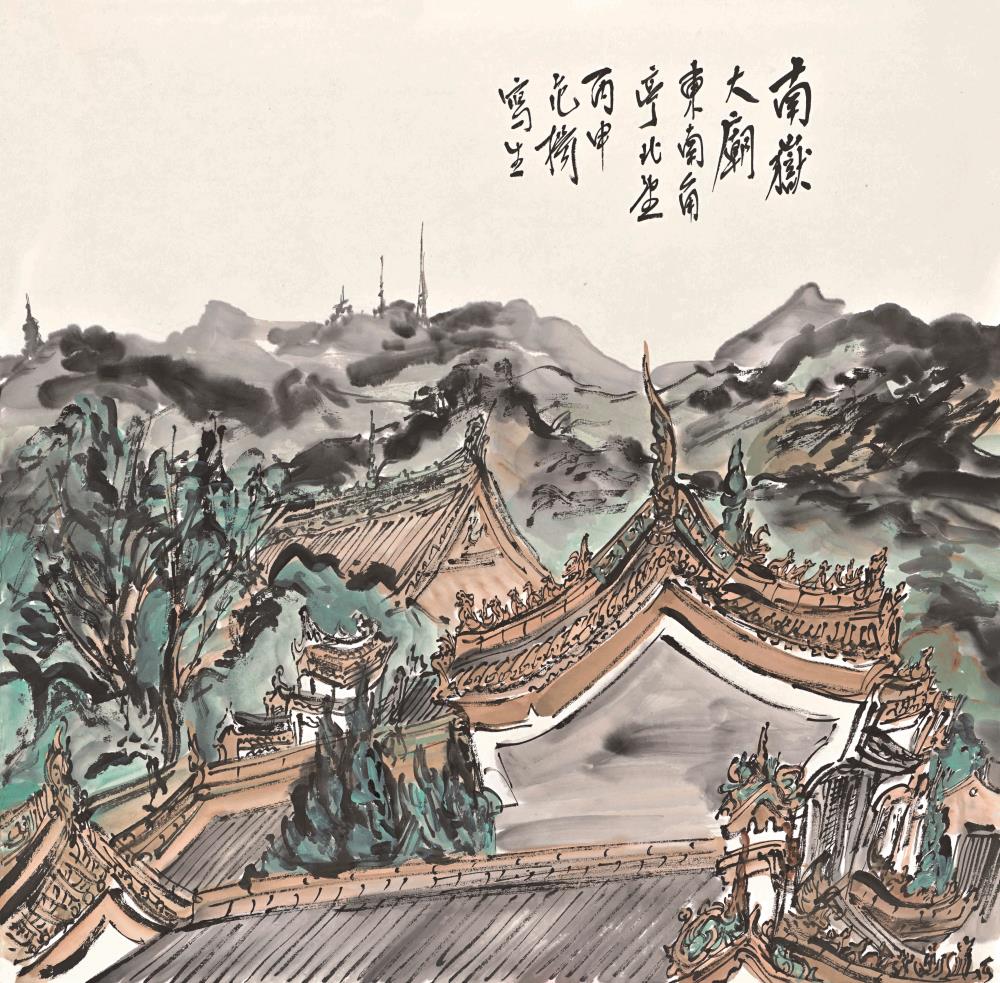 南嶽
大廟
東南角
亭北望
丙申
寫生